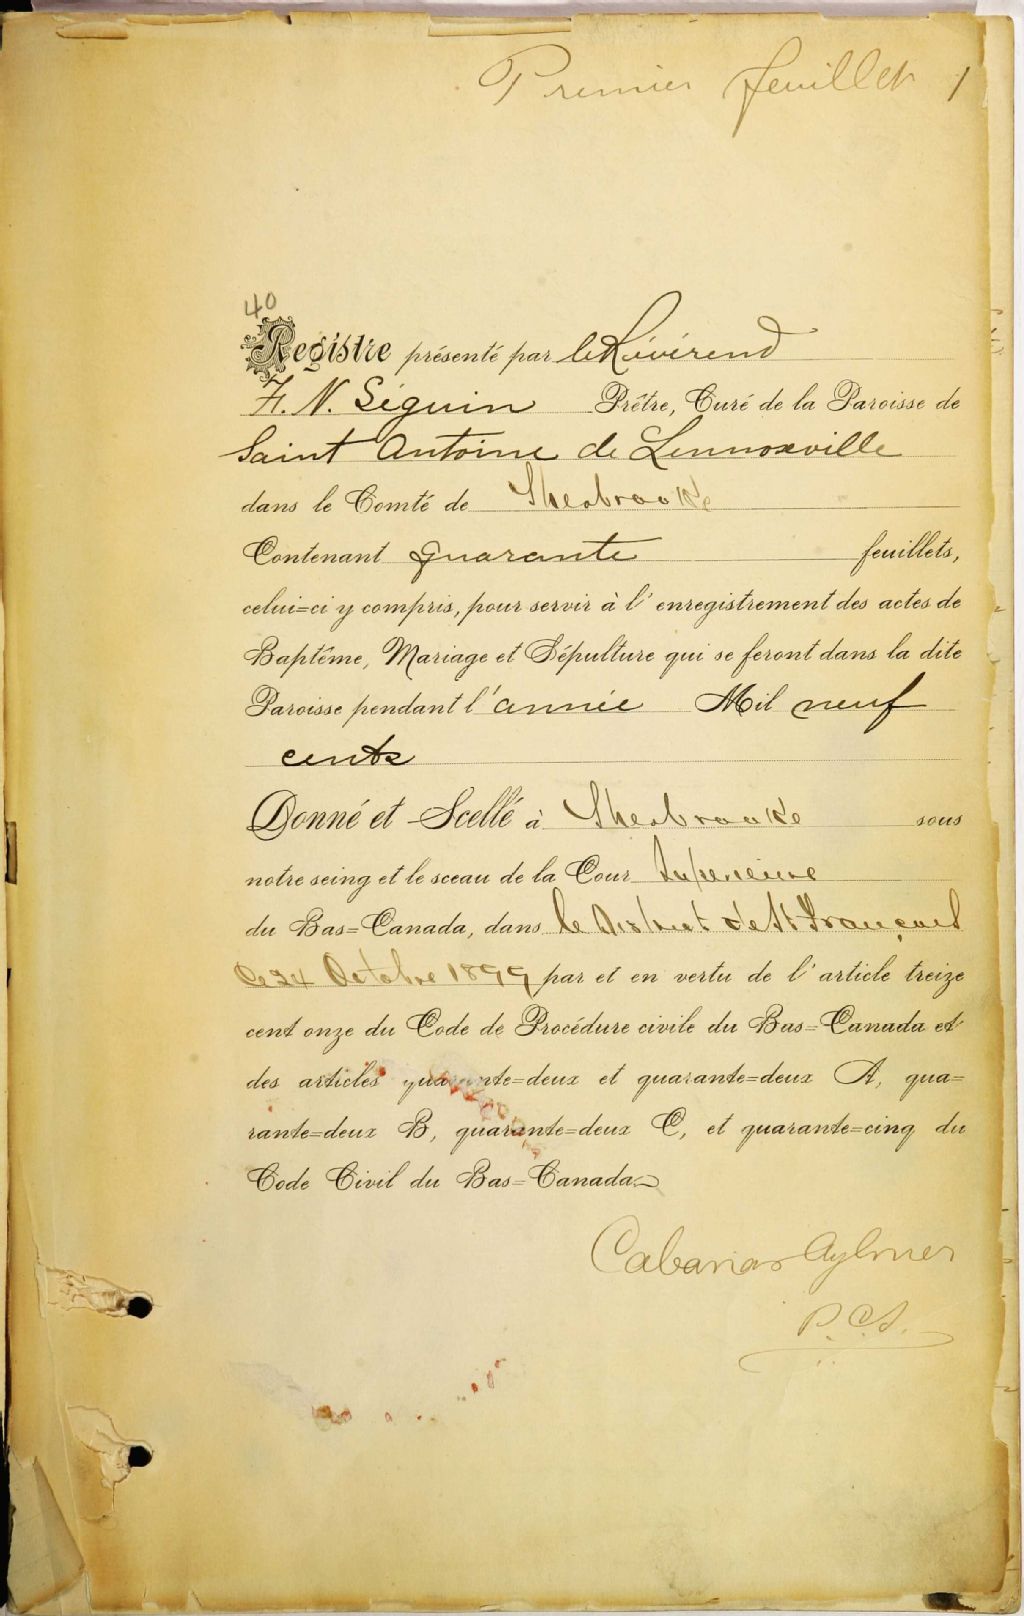 Premier feuillet 1
40
Registre présenté par le Révérend
F. N. Séguin Prêtre, Curé de la Paroisse de
Saint Antoine de Lennoxville
dans le Comté de Sherbrooke
Contenant quarante feuillets,
celui=ci y compris, pour servir à l'enregistrement des actes de
Baptême, Mariage et Sépulture qui se feront dans la dite
Paroisse pendant l'année Mil neuf
cents
Donné et Scellé à Sherbrooke sous
notre seing et le sceau de la Cour Supérieure
du Bas=Canada, dans le District de St François
Ce 24 Octobre 1899 par et en vertu de l'article treize
cent onze du Code de Procédure civile du Bas=Canada et
des articles quarante=deux et quarante=deux A, qua=
rante=deux B, quarante=deux C, et quarante=cinq du
Code Civil du Bas=Canada.
Cabanas Aylmer
P.C.S.